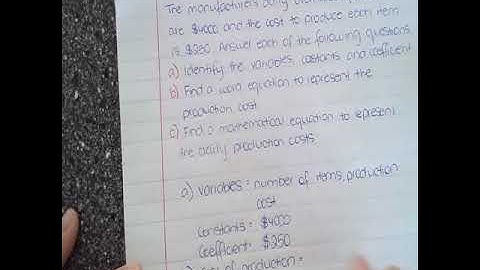 The manufacturers daily
are $4000 and the cost to produce each item
is $250. Answer each of the following questions.
a) Identify the variables, constants and coefficient
b) Find a word equation to represent the
production cost.
c) Find a mathematical equation to represent
the daily production costs.
a) variables = number of items, production
cost
constants = $4000
coefficient = $250
of production =